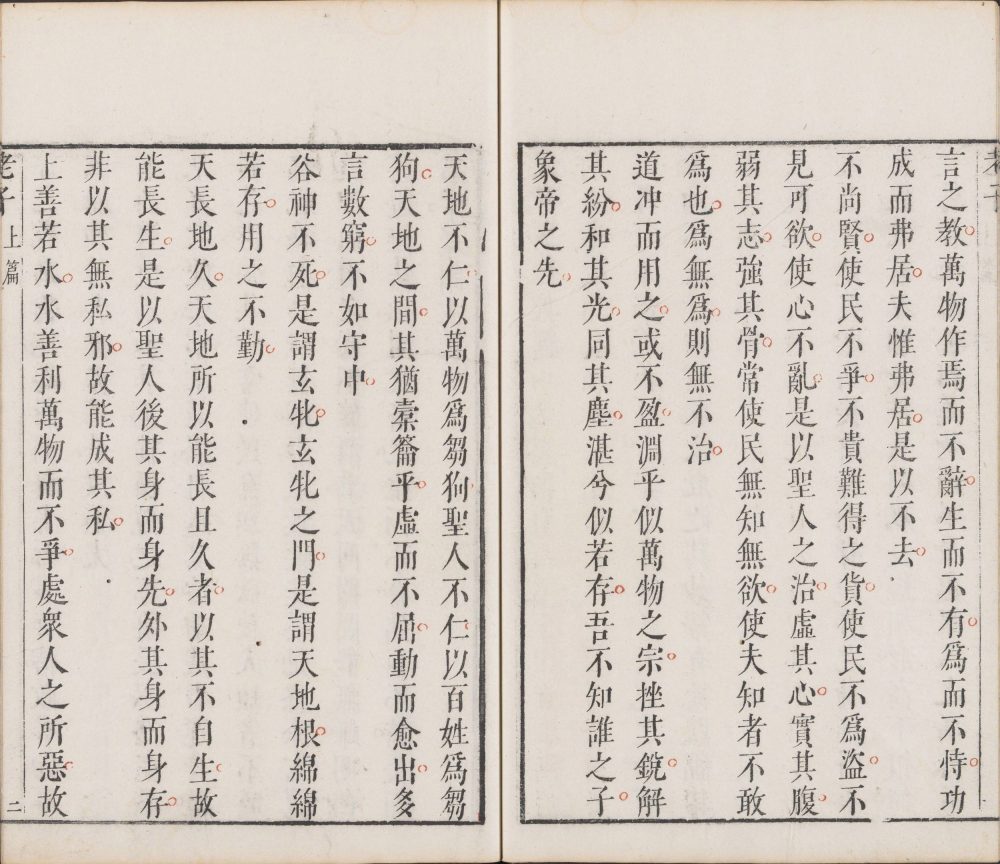 言之教萬物作焉而不辭生而不有爲而不恃功
成而弗居夫惟弗居是以不去
不尚賢使民不爭不貴難得之貨使民不爲盜不
見可欲使心不亂是以聖人之治虛其心實其腹
弱其志強其骨常使民無知無欲使夫知者不敢
爲也爲無爲則無不治
道冲而用之或不盈淵乎似萬物之宗挫其銳解
其紛和其光同其塵湛兮似若存吾不知誰之子
象帝之先
天地不仁以萬物爲芻狗聖人不仁以百姓爲芻
狗天地之間其猶橐籥乎虛而不屈動而愈出多
言數窮不如守中
谷神不死是謂玄牝玄牝之門是謂天地根綿綿
若存用之不勤
天長地久天地所以能長且久者以其不自生故
能長生是以聖人後其身而身先外其身而身存
非以其無私邪故能成其私
上善若水水善利萬物而不爭處衆人之所惡故
老子 上篇 二